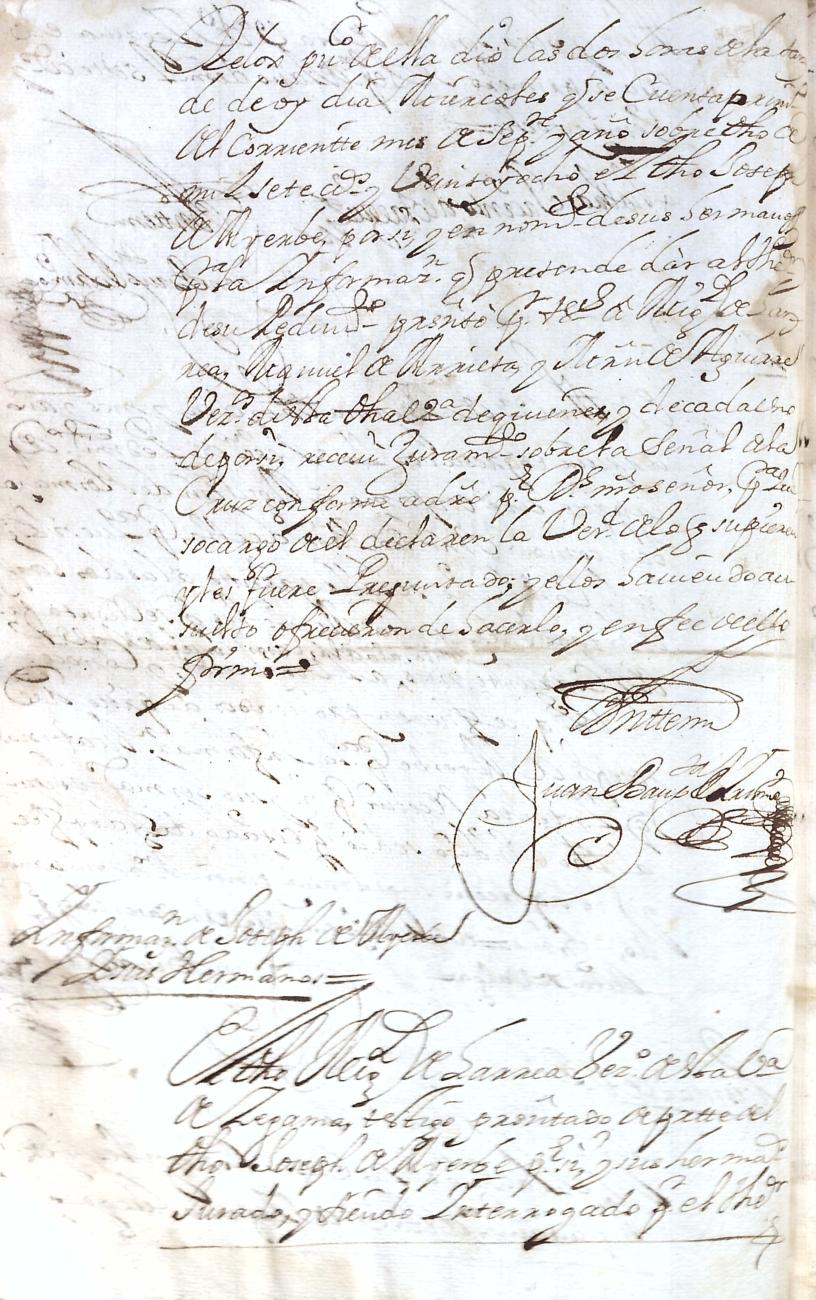 Relox pu.co de ella dió las dos horas de la tar-
de de oy dia Miércoles q se Cuenta prim.o
del Corriente mes de Sep.re y año sobre dho de
mil setez.s y Veinte y ocho el dho Joseph
de Ayerbe, por si, y en nom.e de sus hermanos
p.ra la Informaz.n q pretende dár al then.r
de su Pedim.to presentó p.r tes.s a Mig.l de Larr
rea, Manuel de Arrieta, y Mrn de Aguirre
Vez.s de esta dha V.a de quienes, y de cada uno
de por si, receui Juram.to sobre la señal de la
Cruz conforme a dro p.r D.s nro señor, p.a que
so cargo de el declaren la Ver.d de lo q supieren
y les fuere Preguntado; y ellos hauiendo au
suelto ofrecieron de hacerlo, y en fee de ello
firmé =
Ante mi
Juan Baup.ta
Informaz.n de Joseph de Ayerbe
y sus Hermanos =
El dho Mig.l de Larrea Vez.o de esta V.a
de Zegama, testigo presentado de partte del
dho Joseph de Ayerbe p.r si, y sus herma.s
Jurado, y siendo Interrogado p.r el the.r